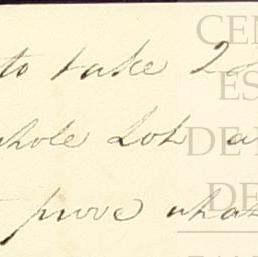 to take 2
whole Lot a
prove what
CEN
ES
DE
DE